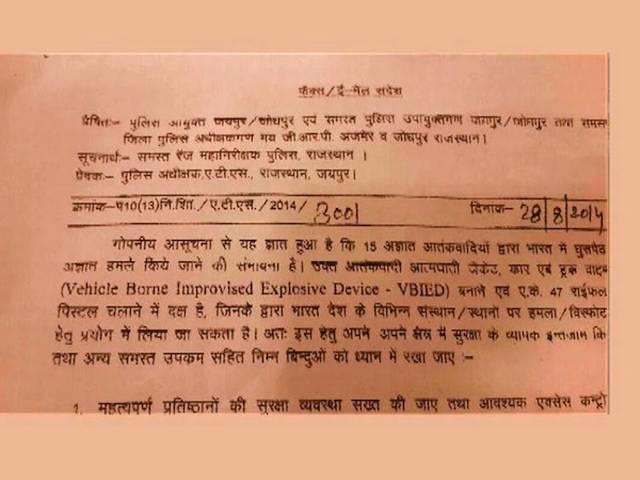 फैक्स/ई-मेल संदेश
प्रेषितः- पुलिस आयुक्त जयपुर/जोधपुर एवं समस्त पुलिस उपायुक्तगण जयपुर/जोधपुर तथा समस
जिला पुलिस अधीक्षकगण मय जी.आर.पी. अजमेर व जोधपुर राजस्थान।
सूचनार्थः- समस्त रेंज महानिरीक्षक पुलिस, राजस्थान ।
प्रेषकः- पुलिस अधीक्षक,ए.टी.एस., राजस्थान, जयपुर।
क्रमांक-प10(13)नि.शा./ए.टी.एस./2014/ 3001 दिनाक- 28/8/2014
गोपनीय आसूचना से यह ज्ञात हुआ है कि 15 अज्ञात आतंकवादियों द्वारा भारत में घुसपैठ
अज्ञात हमले किये जाने की संभावना है। उक्त आतंकवादी आत्मघाती जैकेट, कार एवं ट्रक
(Vehicle Borne Improvised Explosive Device - VBIED) बनाने एवं ए.के. 47 राईफल
पिस्टल चलाने में दक्ष है, जिनके द्वारा भारत देश के विभिन्न संस्थान/स्थानों पर हमला/विस्फोट
हेतु प्रयोग में लिया जा सकता है। अतः इस हेतु अपने अपने क्षेत्र में सुरक्षा के व्यापक इन्तजाम कि
तथा अन्य समस्त उपक्रम सहित निम्न बिन्दुओं को ध्यान में रखा जाए :-
1. महत्वपर्ण प्रतिष्ठानों की सुरक्षा व्यवस्था सख्त की जाए तथा आवश्यक एक्सेस कन्ट्रो